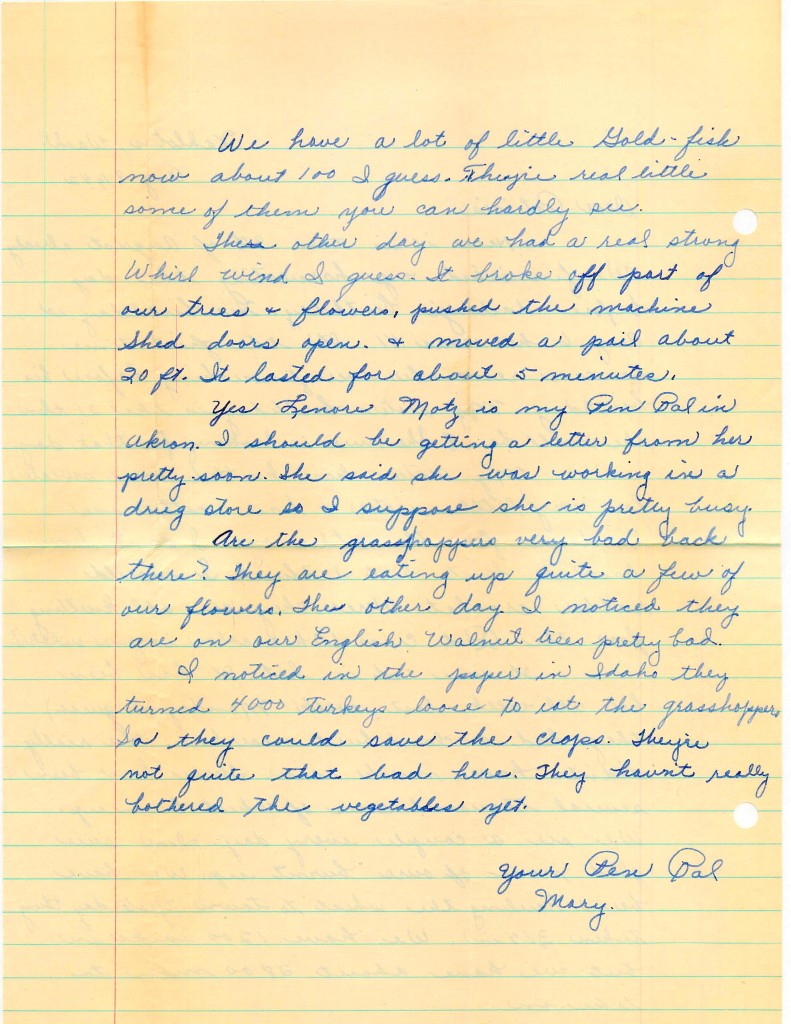 We have a lot of little Gold-fish
now about 100 I guess. They're real little
some of them you can hardly see.
The other day we had a real strong
Whirl wind I guess. It broke off part of
our trees & flowers, pushed the machine
Shed doors open. & moved a pail about
20 ft. It lasted for about 5 minutes.
Yes Lenore Motz is my Pen Pal in
Akron. I should be getting a letter from her
pretty soon. She said she was working in a
drug store so I suppose she is pretty busy.
Are the grasshoppers very bad back
there? They are eating up quite a few of
our flowers. The other day I noticed they
are on our English Walnut trees pretty bad.
I noticed in the paper in Idaho they
turned 4000 turkeys loose to eat the grasshoppers
So they could save the crops. They're
not quite that bad here. They havn't really
bothered the vegetables yet.
Your Pen Pal
Mary.